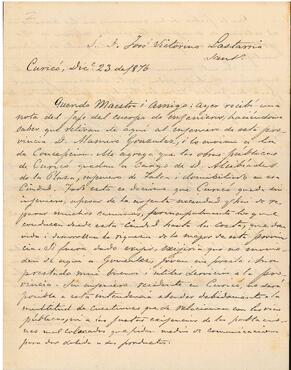 S. D. José Victorino Lastarria
Sant.
Curicó, Dic.e 23 de 1876
Querido Maestro i Amigo: Ayer recibí una
nota del jefe del cuerpo de injenieros, haciéndome
saber que retiran de aquí al injeniero de esta pro
vincia D. Gonzalez, i lo envían a
de Concepcion. Me agrega que las obras públicas
de Curicó quedan a cargo de D. Alcibíades
de la Plaza, injeniero de Talca i domiciliado en esa
ciudad. Todo esto es decirme que Curicó queda sin
injeniero, apesar de la urjente necesidad que hai de re
parar muchos caminos, principalmente los que
conducen desde esta ciudad hasta la costa, que da
vida i desarrollan la riqueza de la mayor parte de la provin
cia. Si fuera dado exijir, exijiria que no envia
sen de aquí a Gonzalez, jóven mui
prestando mui buenos i útiles servicios a la pro
vincia. Sin injeniero residente en Curicó, no será
posible a esta intendencia atender debidamente a la
multitud de cuestiones que se relacionan con las vias
públicas, ni a las justas exijencias de las poblacio
nes mal colocadas que piden medios de comunicaciones
para dar salida a sus productos.